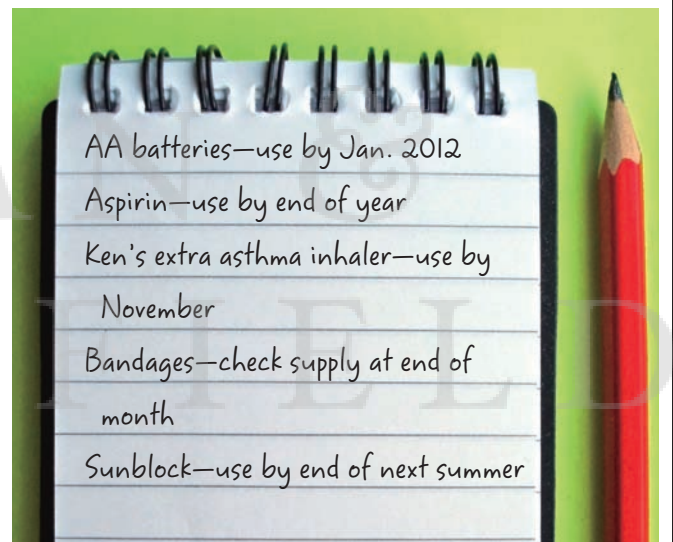 AA batteries—use by Jan. 2012
Aspirin—use by end of year
Ken's extra asthma inhaler—use by
November
Bandages—check supply at end of
month
Sunblock—use by end of next summer